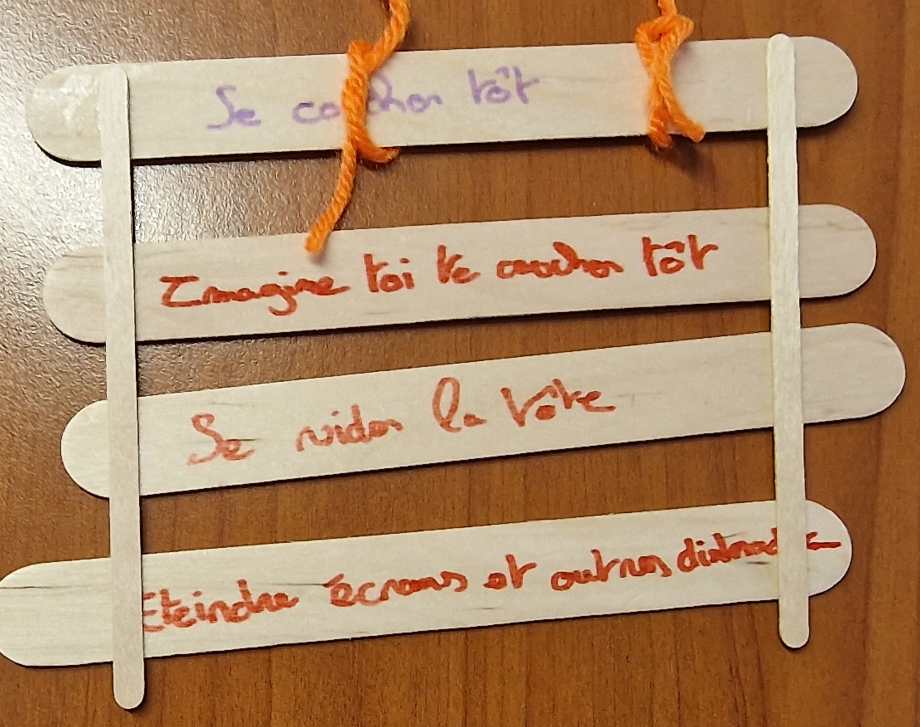 Se coucher tôt
Imagine toi te coucher tôt
Se vider la tête
Eteindre écrans et autres